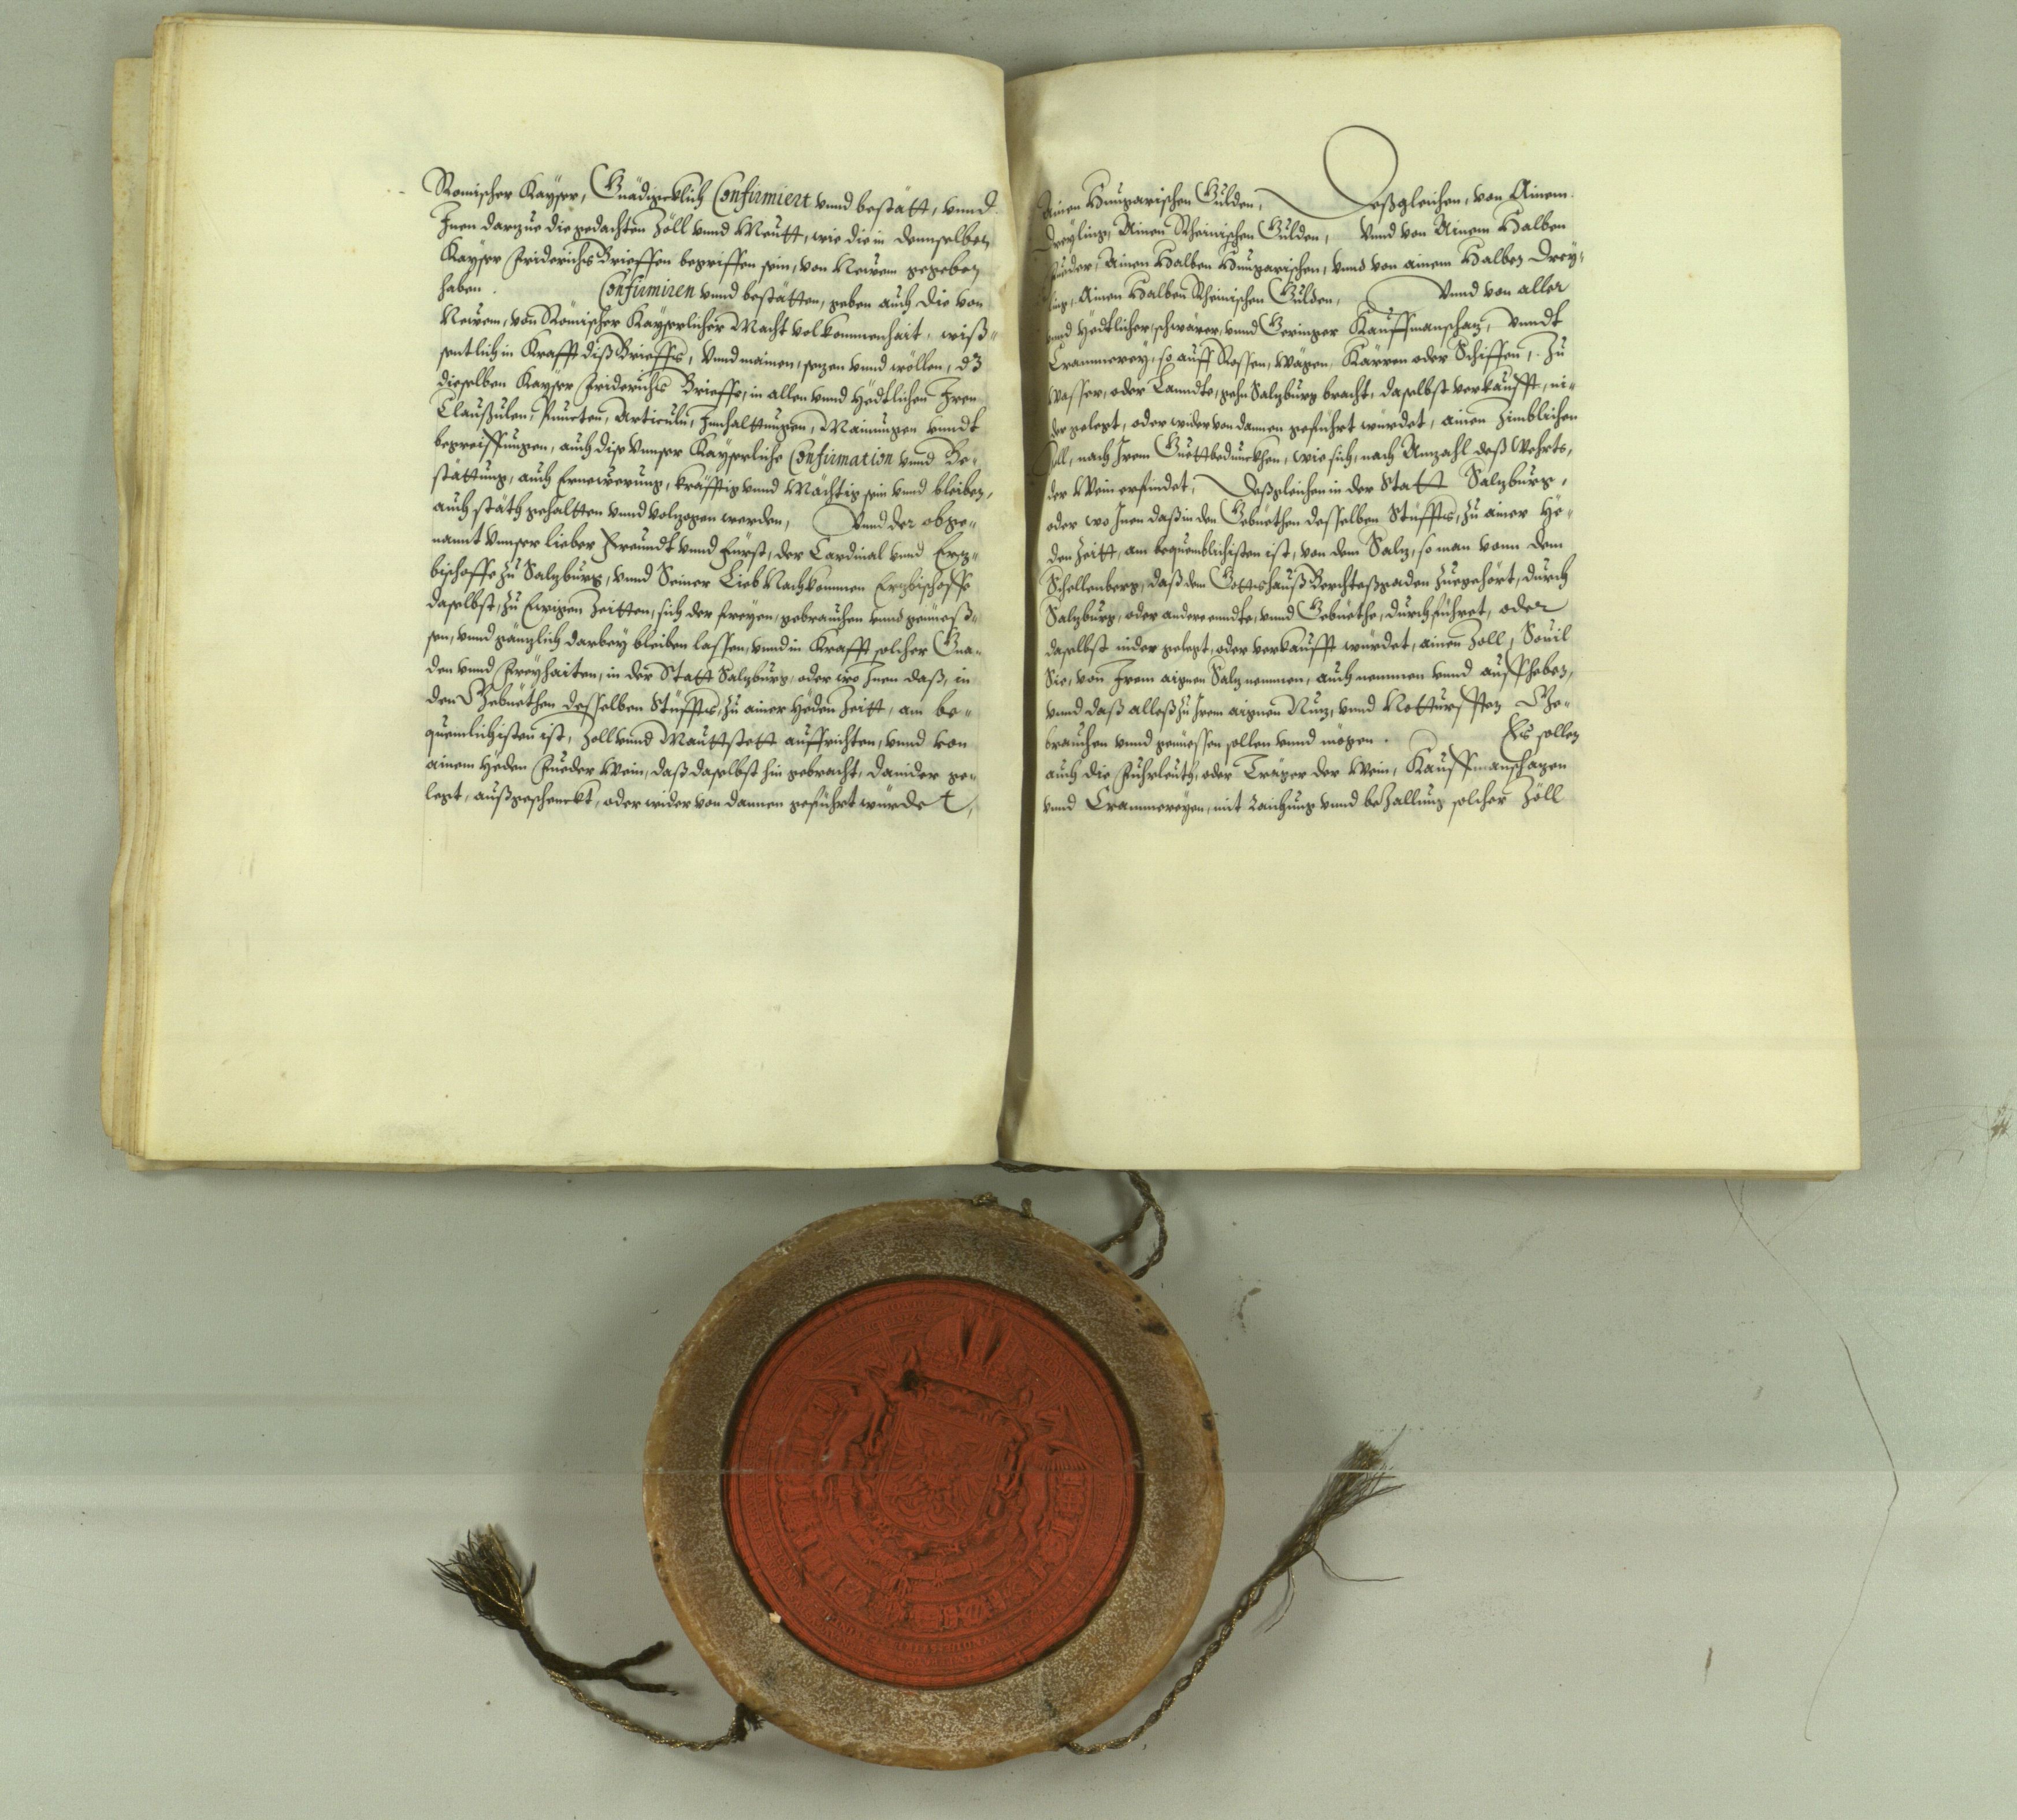 Römischer Kayser, Gnädigcklich Confirmiert vnnd bestätt, vnnd
Inen darzue die gedachten Zöll vnnd Meütt, wie die in demselben
Kayser Friderichs Brieffen begriffen sein, von Newem gegeben
haben. Confirmiren vnnd bestätten, geben auch die von
Newem, von Römischer Kayserlicher Macht volkommenhait, wiß=
sentlich in Krafft diß Brieffs, Vnnd mainen, sezen vnnd wöllen, dz
dieselben Kayser Friderichs Brieffe, in allen vnnd Yedtlichen Iren
Claußulen, Puncten, Articuln, Innhalttungen, Mainungen vnndt
begreiffungen, auch dise Vnnser Kayserliche Confirmation vnnd Be=
stättung, auch Ernewerung, kräfftig vnnd Mächtig sein vnnd bleiben,
auch stäth gehaltten vnnd volzogen werden, Vnnd der obge=
nannt Vnnser lieber Freundt vnnd Fürst, der Cardinal vnnd Erz=
bischoffe zu Salzburg, vnnd Seiner Lieb Nachkommen Erzbischoffe
daselbst, zu Ewigen Zeitten, sich der freyen, gebrauchen vnnd genieß=
sen, vnnd gänzlich darbey bleiben lassen, vnnd in Krafft solcher Gna=
den vnnd Freyhaiten, in der Statt Salzburg, oder wo Inen daß, in
den Gebiethen desselben Stüffts, zu ainer Yeden Zeitt, am be=
quemlichisten ist, Zoll vnnd Mauttstett auffrichten, vnnd von
ainem Yeden Fueder Wein, daß daselbst hin gebracht, danider ge=
legt, außgeschenckt, oder wider von dannen geführt würdet,
Ainen Hungarischen Gulden, Deßgleichen, von Ainem
Dreyling, Ainen Rheinischen Gulden, Vnnd von Ainem Halben
Fueder, Ainen Halben Hungarischen, vnnd von ainem Halben Drey=
ling, Ainen Halben Rheinischen Gulden, Vnnd von aller
vnnd Yedtlicher, schwärer, vnnd Geringer Kauffmanschaz, vnndt
Crammerey, so auff Rossen, Wägen, Kärren oder Schiffen, zu
Wasser, oder Lanndte, gehn Salzburg bracht, daselbst verkaufft, ni=
der gelegt, oder wider von dannen geführt würdet, ainen zimblichen
Zoll, nach Irem Guettbedunckhen, wie sich, nach Anzahl deß Wehrts,
der Wein erfindet, Deßgleichen in der Statt Salzburg,
oder wo Inen daß in den Gebiethen desselben Stüffts, zu ainer Ye=
den Zeitt, am bequemblichisten ist, von dem Salz, so man vonn dem
Schellenberg, daß dem Gottshauß Berchteßgaden zuegehört, durch
Salzburg, oder andere enndte, vnnd Gebiethe, durchführet, oder
daselbst nider gelegt, oder verkaufft würdet, ainen Zoll, Souil
Sie, von Irem aignen Salz nemmen, auch nemmen vnnd auffheben,
vnnd daß alleß zu Irem aignen Nuz, vnnd Notturfften Ge=
brauchen vnnd geniessen sollen vnnd mögen. Es sollen
auch die Fuhrleuth, oder Träger der Wein, Kauffmanschazen
vnnd Crammereyen, mit Raichung vnnd beZallung solcher Zöll